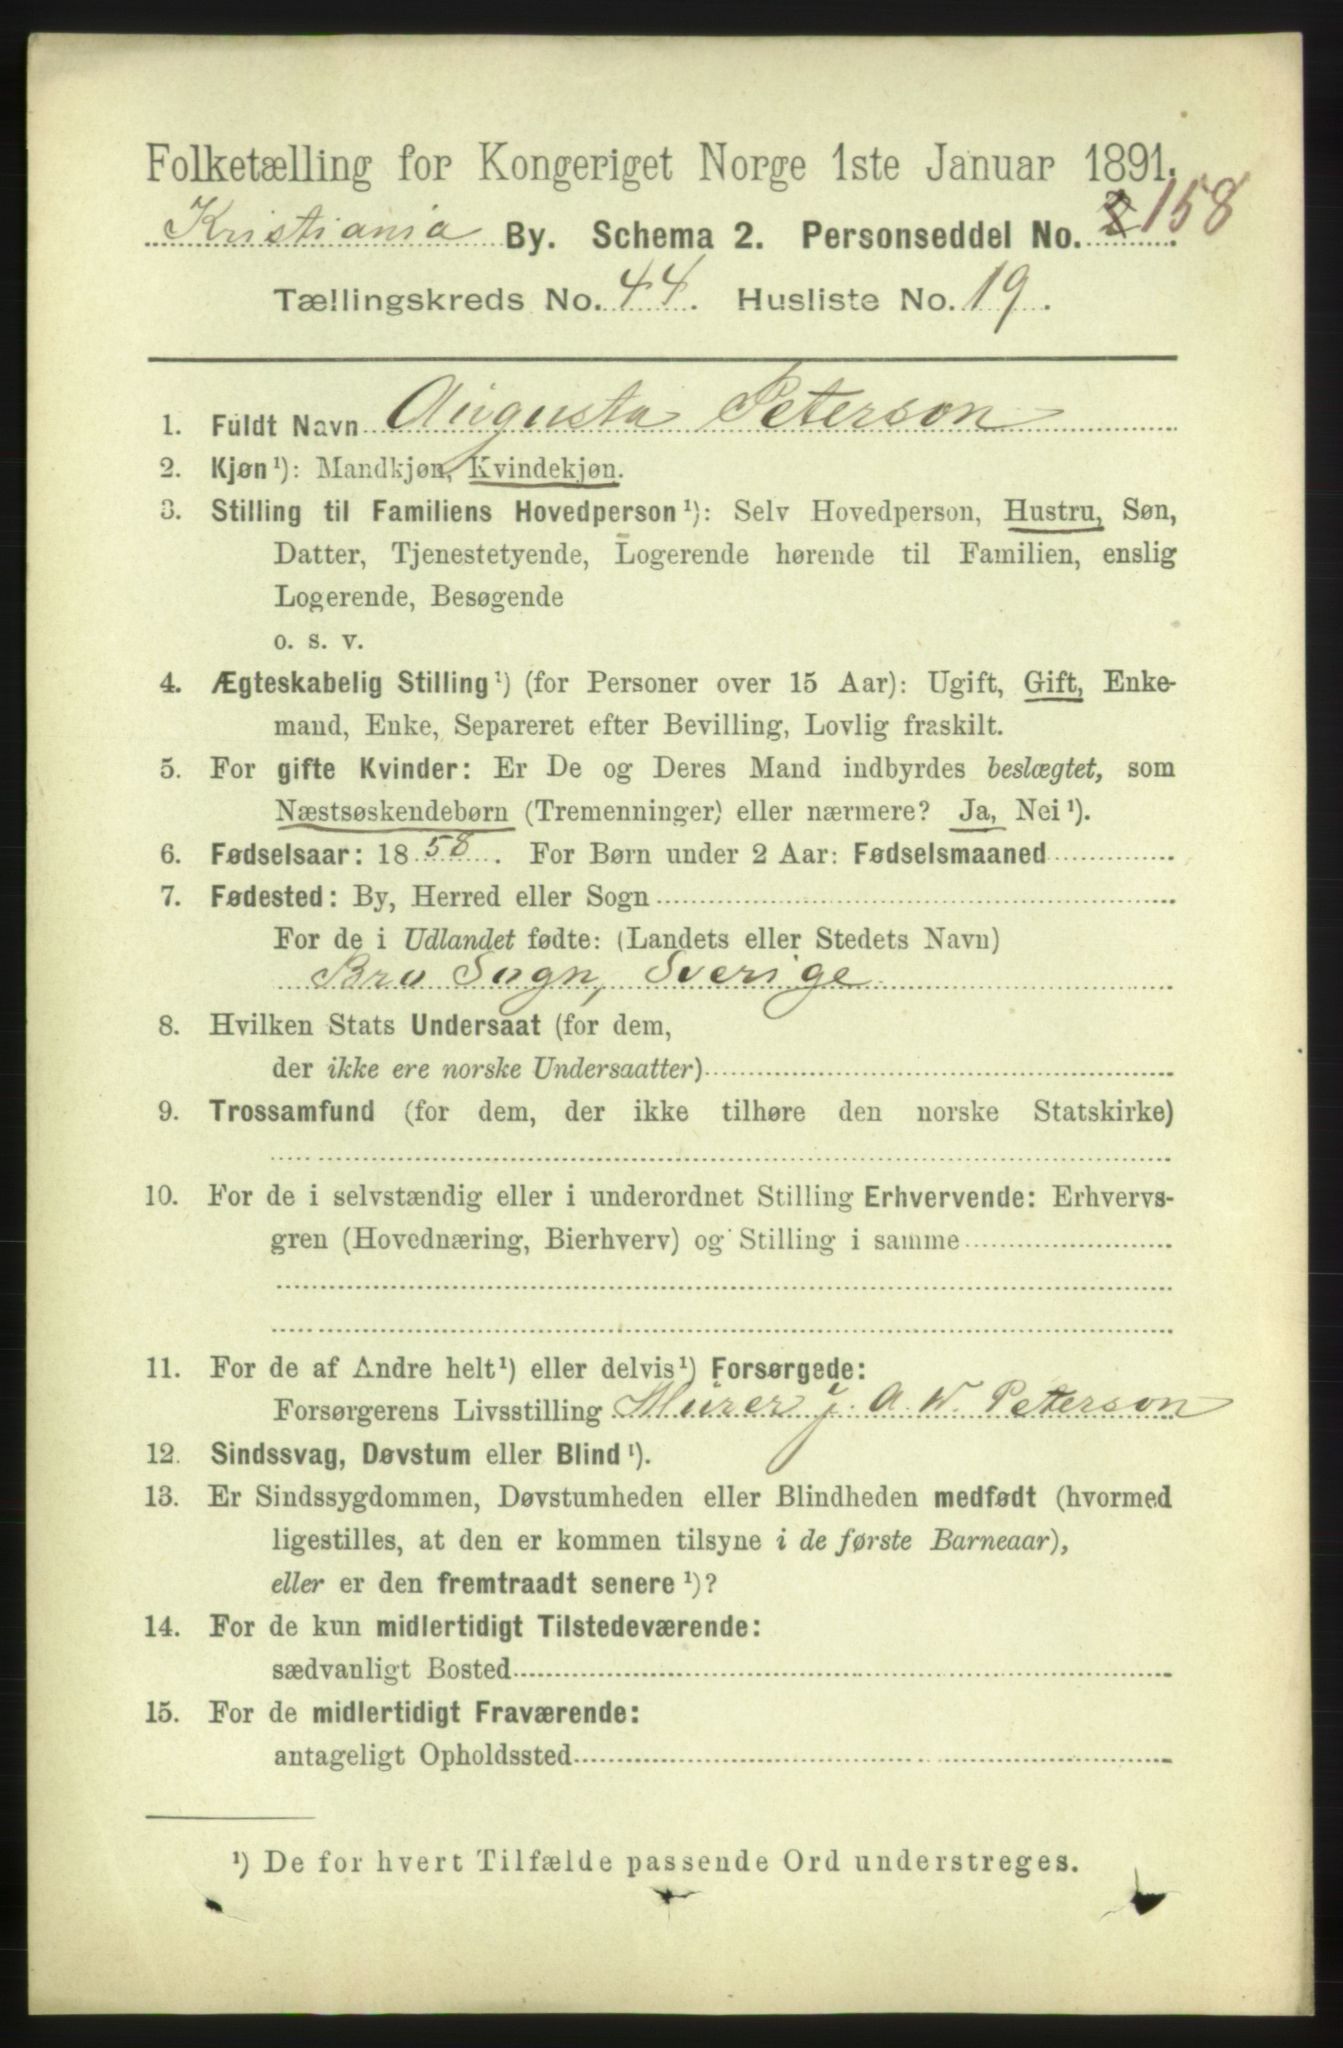 Folketælling for Kongeriget Norge 1ste Januar 1891.
Kristiania By. Schema 2. Personseddel No. 2 158
Tællingskreds No. 44. Husliste No. 19.
1. Fuldt Navn Augusta Peterson
2. Kjøn¹): Mandkjøn, Kvindekjøn.
3. Stilling til Familiens Hovedperson¹): Selv Hovedperson, Hustru, Søn,
Datter, Tjenestetyende, Logerende hørende til Familien, enslig
Logerende, Besøgende
o. s. v.
4. Ægteskabelig Stilling¹) (for Personer over 15 Aar): Ugift, Gift, Enke-
mand, Enke, Separeret efter Bevilling, Lovlig fraskilt.
5. For gifte Kvinder: Er De og Deres Mand indbyrdes beslægtet, som
Næstsøskendebørn (Tremenninger) eller nærmere? Ja, Nei¹).
6. Fødselsaar: 1858. For Børn under 2 Aar: Fødselsmaaned
7. Fødested: By, Herred eller Sogn
For de i Udlandet fødte: (Landets eller Stedets Navn)
Bro Sogn, Sverige
8. Hvilken Stats Undersaat (for dem,
der ikke ere norske Undersaatter)
9. Trossamfund (for dem, der ikke tilhøre den norske Statskirke)
10. For de i selvstændig eller i underordnet Stilling Erhvervende: Erhvervs-
gren (Hovednæring, Bierhverv) og Stilling i samme
11. For de af Andre helt¹) eller delvis¹) Forsørgede:
Forsørgerens Livsstilling Murer J. A. W. Peterson
12. Sindssvag, Døvstum eller Blind¹).
13. Er Sindssygdommen, Døvstumheden eller Blindheden medfødt (hvormed
ligestilles, at den er kommen tilsyne i de første Barneaar),
eller er den fremtraadt senere¹)?
14. For de kun midlertidigt Tilstedeværende:
sædvanligt Bosted
15. For de midlertidigt Fraværende:
antageligt Opholdssted
¹) De for hvert Tilfælde passende Ord understreges.